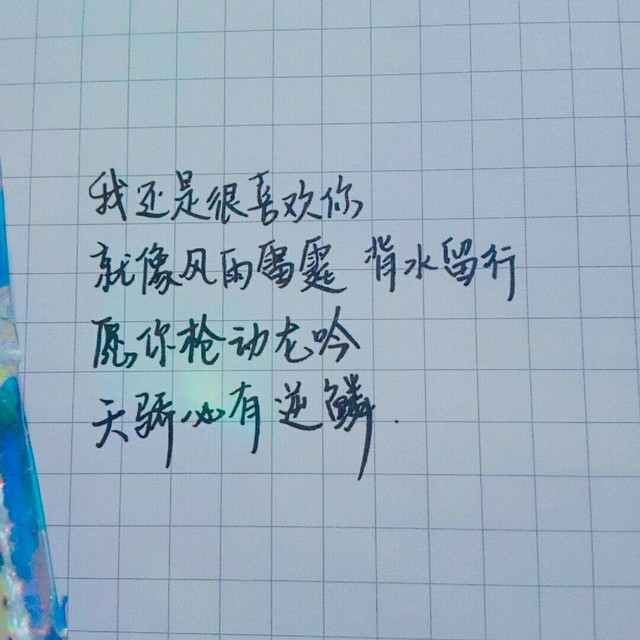 我还是很喜欢你
就像风雨雷霆 背水留行
愿你枪动龙吟
天骄必有逆鳞.